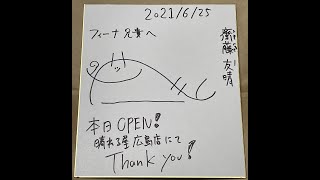 2021/6/25
齋藤友晴
フィーナ兄貴へ
本日OPEN!
晴れる屋広島店にて
Thank you!